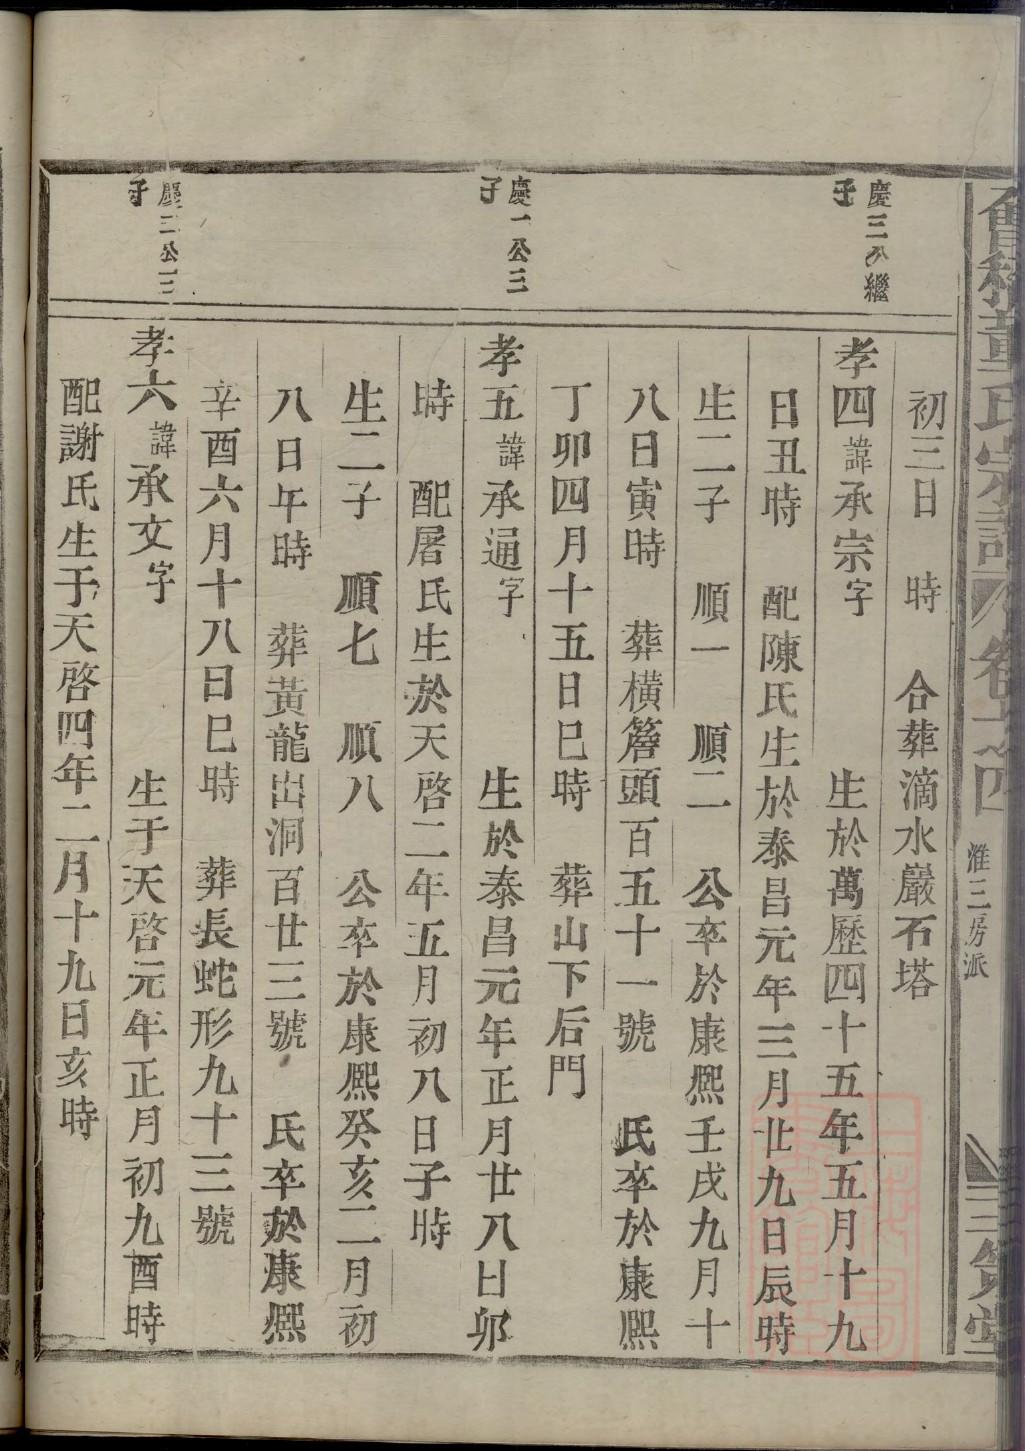 會稽董氏宗譜
卷之四
淮三房派
三策堂
初三日 時 合葬滴水巖石塔
慶三公繼子
孝四諱承宗字 生於萬歷四十五年五月十九
日丑時 配陳氏生於泰昌元年三月廿九日辰時
生二子 順一 順二 公卒於康熙壬戌九月十
八日寅時 葬橫簷頭百五十一號 氏卒於康熙
丁卯四月十五日巳時 葬山下后門
慶一公三子
孝五諱承通字 生於泰昌元年正月廿八日卯
時 配屠氏生於天啓二年五月初八日子時
生二子 順七 順八 公卒於康熙癸亥二月初
八日午時 葬黃龍出洞百廿三號 氏卒於康熙
辛酉六月十八日巳時 葬長蛇形九十三號
慶三公三子
孝六諱承文字 生于天啓元年正月初九酉時
配謝氏生于天啓四年二月十九日亥時